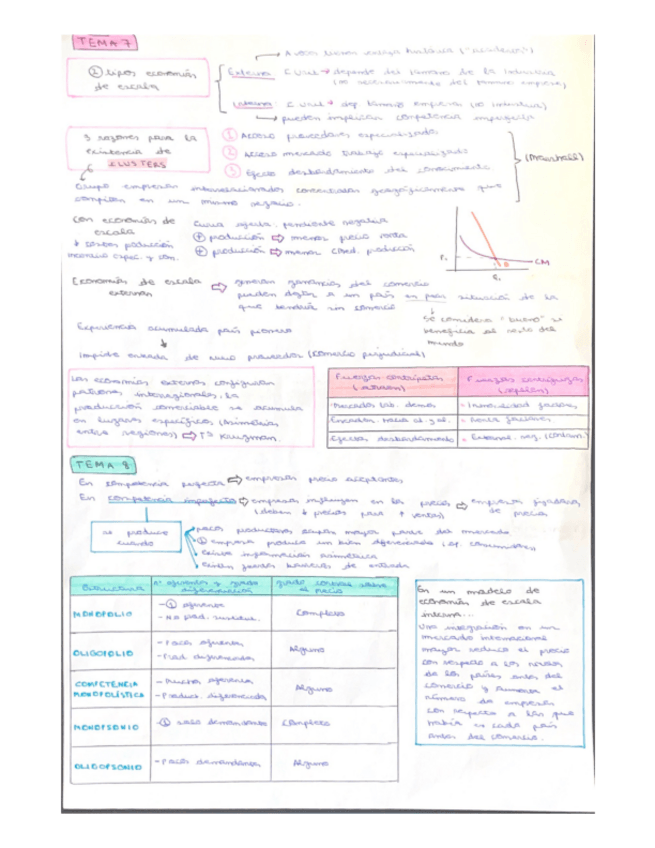 TEMA 7
A veces tienen ventaja histórica ("accidentes")
② tipos economías de escala
Externa: C unit → depende del tamaño de la industria
(no necesariamente del tamaño empresa)
Interna: C unit → dep. tamaño empresa (no industria)
pueden implicar competencia imperfecta
3 razones para la existencia de CLUSTERS
① Acceso proveedores especializados
② Acceso mercado trabajo especializado
③ Efecto desbordamiento del conocimiento
(Marshall)
Grupo empresas interrelacionadas concentradas geográficamente que
compiten en un mismo negocio.
Con economías de escala
↓ costes producción
Curva oferta: pendiente negativa
⊕ producción ⇨ menor precio
⊕ producción ⇨ menor producción
CM
D
Economías de escala externas ⇨ generan ganancias del comercio
pueden dejar a un país en peor situación de la
que tendría sin comercio
Se considera "bueno" si
beneficia al resto del
mundo
Experiencia acumulada país pionero
Impide entrada de (comercio perjudicial)
Las economías externas configuran
patrones interregionales, la
producción comerciable se acumula
en lugares específicos (asimetrías
entre regiones) ⇨ Krugman.
Fuerzas centrípetas (atraen)
Fuerzas centrífugas (repelen)
- Mercados lab. densos
- Inmovilidad factores
- Renta factores
Efectos desbordamiento
- External. neg. (contam.)
TEMA 8
En competencia perfecta ⇨ empresas precio aceptantes
En competencia imperfecta ⇨ empresas influyen en los precios ⇨ empresas fijadoras de precios
(deben ↓ precios para ↑ ventas)
se produce cuando
pocos productores mayor parte del mercado
① empresa produce un bien diferenciado (op. consumidores)
existe información asimétrica
existen grandes barreras de entrada
Estructura
Nº oferentes y grado diferenciación
grado control sobre el precio
MONOPOLIO
- ① oferente
- No prod. sustitut.
Completo
OLIGOPOLIO
- Pocos oferentes
- Prod. diferenciados
Alguno
COMPETENCIA MONOPOLÍSTICA
- Muchos oferentes
- Product. diferenciados
Alguno
MONOPSONIO
- ① solo demandante
Completo
OLIGOPSONIO
- Pocos demandantes
Alguno
En un modelo de
economías de escala
interna...
Una integración en un
mercado internacional
mayor reduce el precio
con respecto a los niveles
de los países antes del
comercio y aumenta el
número de empresas
con respecto a las que
había en cada país
antes del comercio.